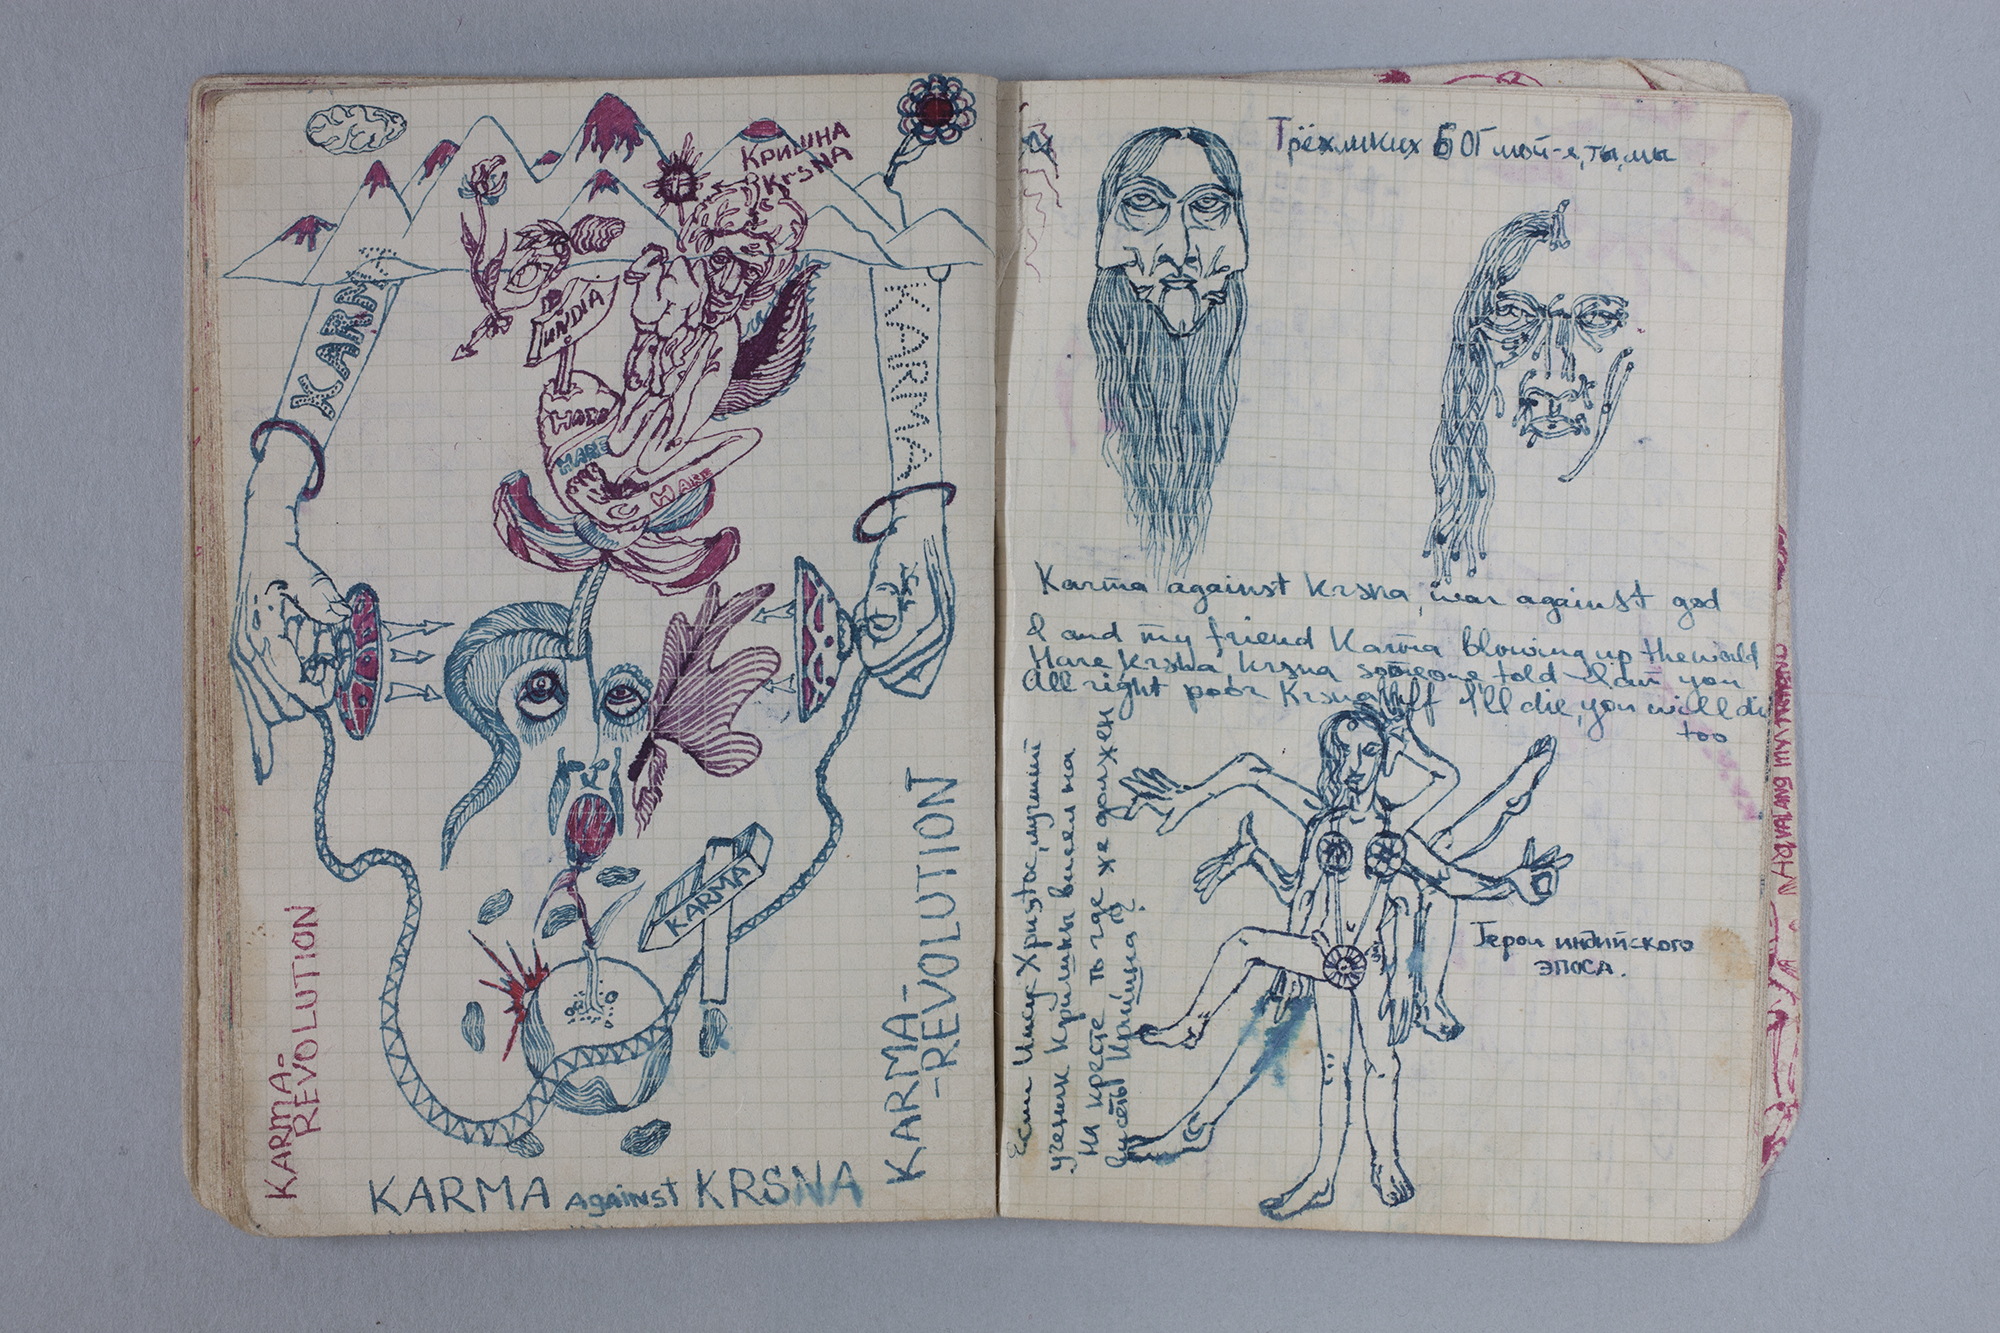 Кришна
Krsna
KARMA
INDIA
KARMA
HARE
HARE
HARE
KARMA
KARMA-
REVOLUTION
KARMA-
-REVOLUTION
KARMA against KRSNA
Трёхликих БОГ мой-я, ты, мы
Karma against Krsna, war against god
I and my friend Karma blowing up the world
Hare Krsna Krsna someone told I am you
All right poor Krsna, if I'll die, you will die
too
Если Иисус Христос, лучший
ученик Кришны висел на
на кресте то где же должен
висеть Кришна?
Герои индийского
эпоса.